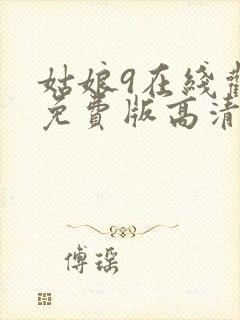 姑娘9在綫
免費版高清
傅瑤